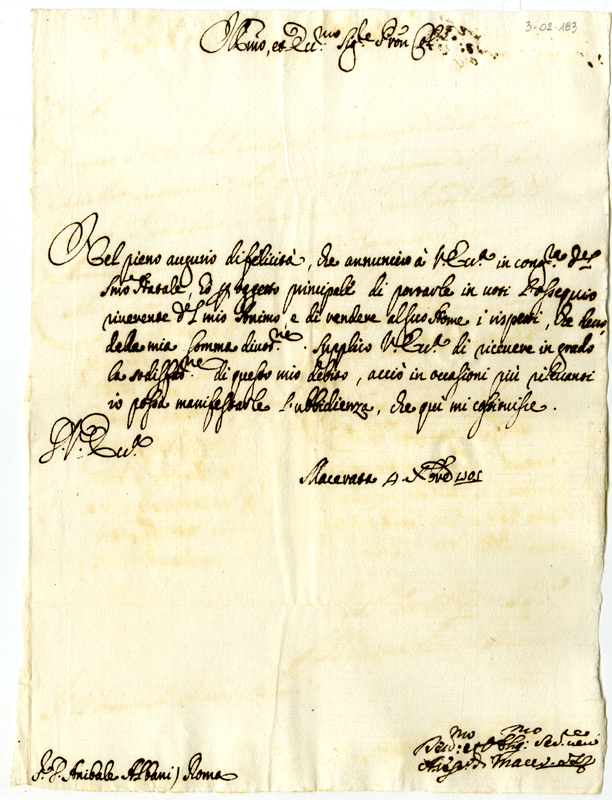 3-02-183
Illmo, et Ecc.mo Sig.re Pron Col.mo
Nel pieno augurio di felicità, che annuncio à V. Ecc.a in cong.ra del
Smo Natale, hò p oggetto principale di portarle in voti l'ossequio
riverente del mio Animo e di rendere al suo Nome i rispetti, che
della mia somma divot.ne. Supplico V. Ecc.a di ricevere in grado
la sodisfat.ne di questo mio debito, acciò in occasioni più rilevanti
io possa manifestarle l'ubbidienza, che quì mi costituisce.
D. V. Ecc.a
Macerata 4 Xbre 1701
Dev.mo et Obbl.mo Ser.re
S. D. Anibale Albani) Roma